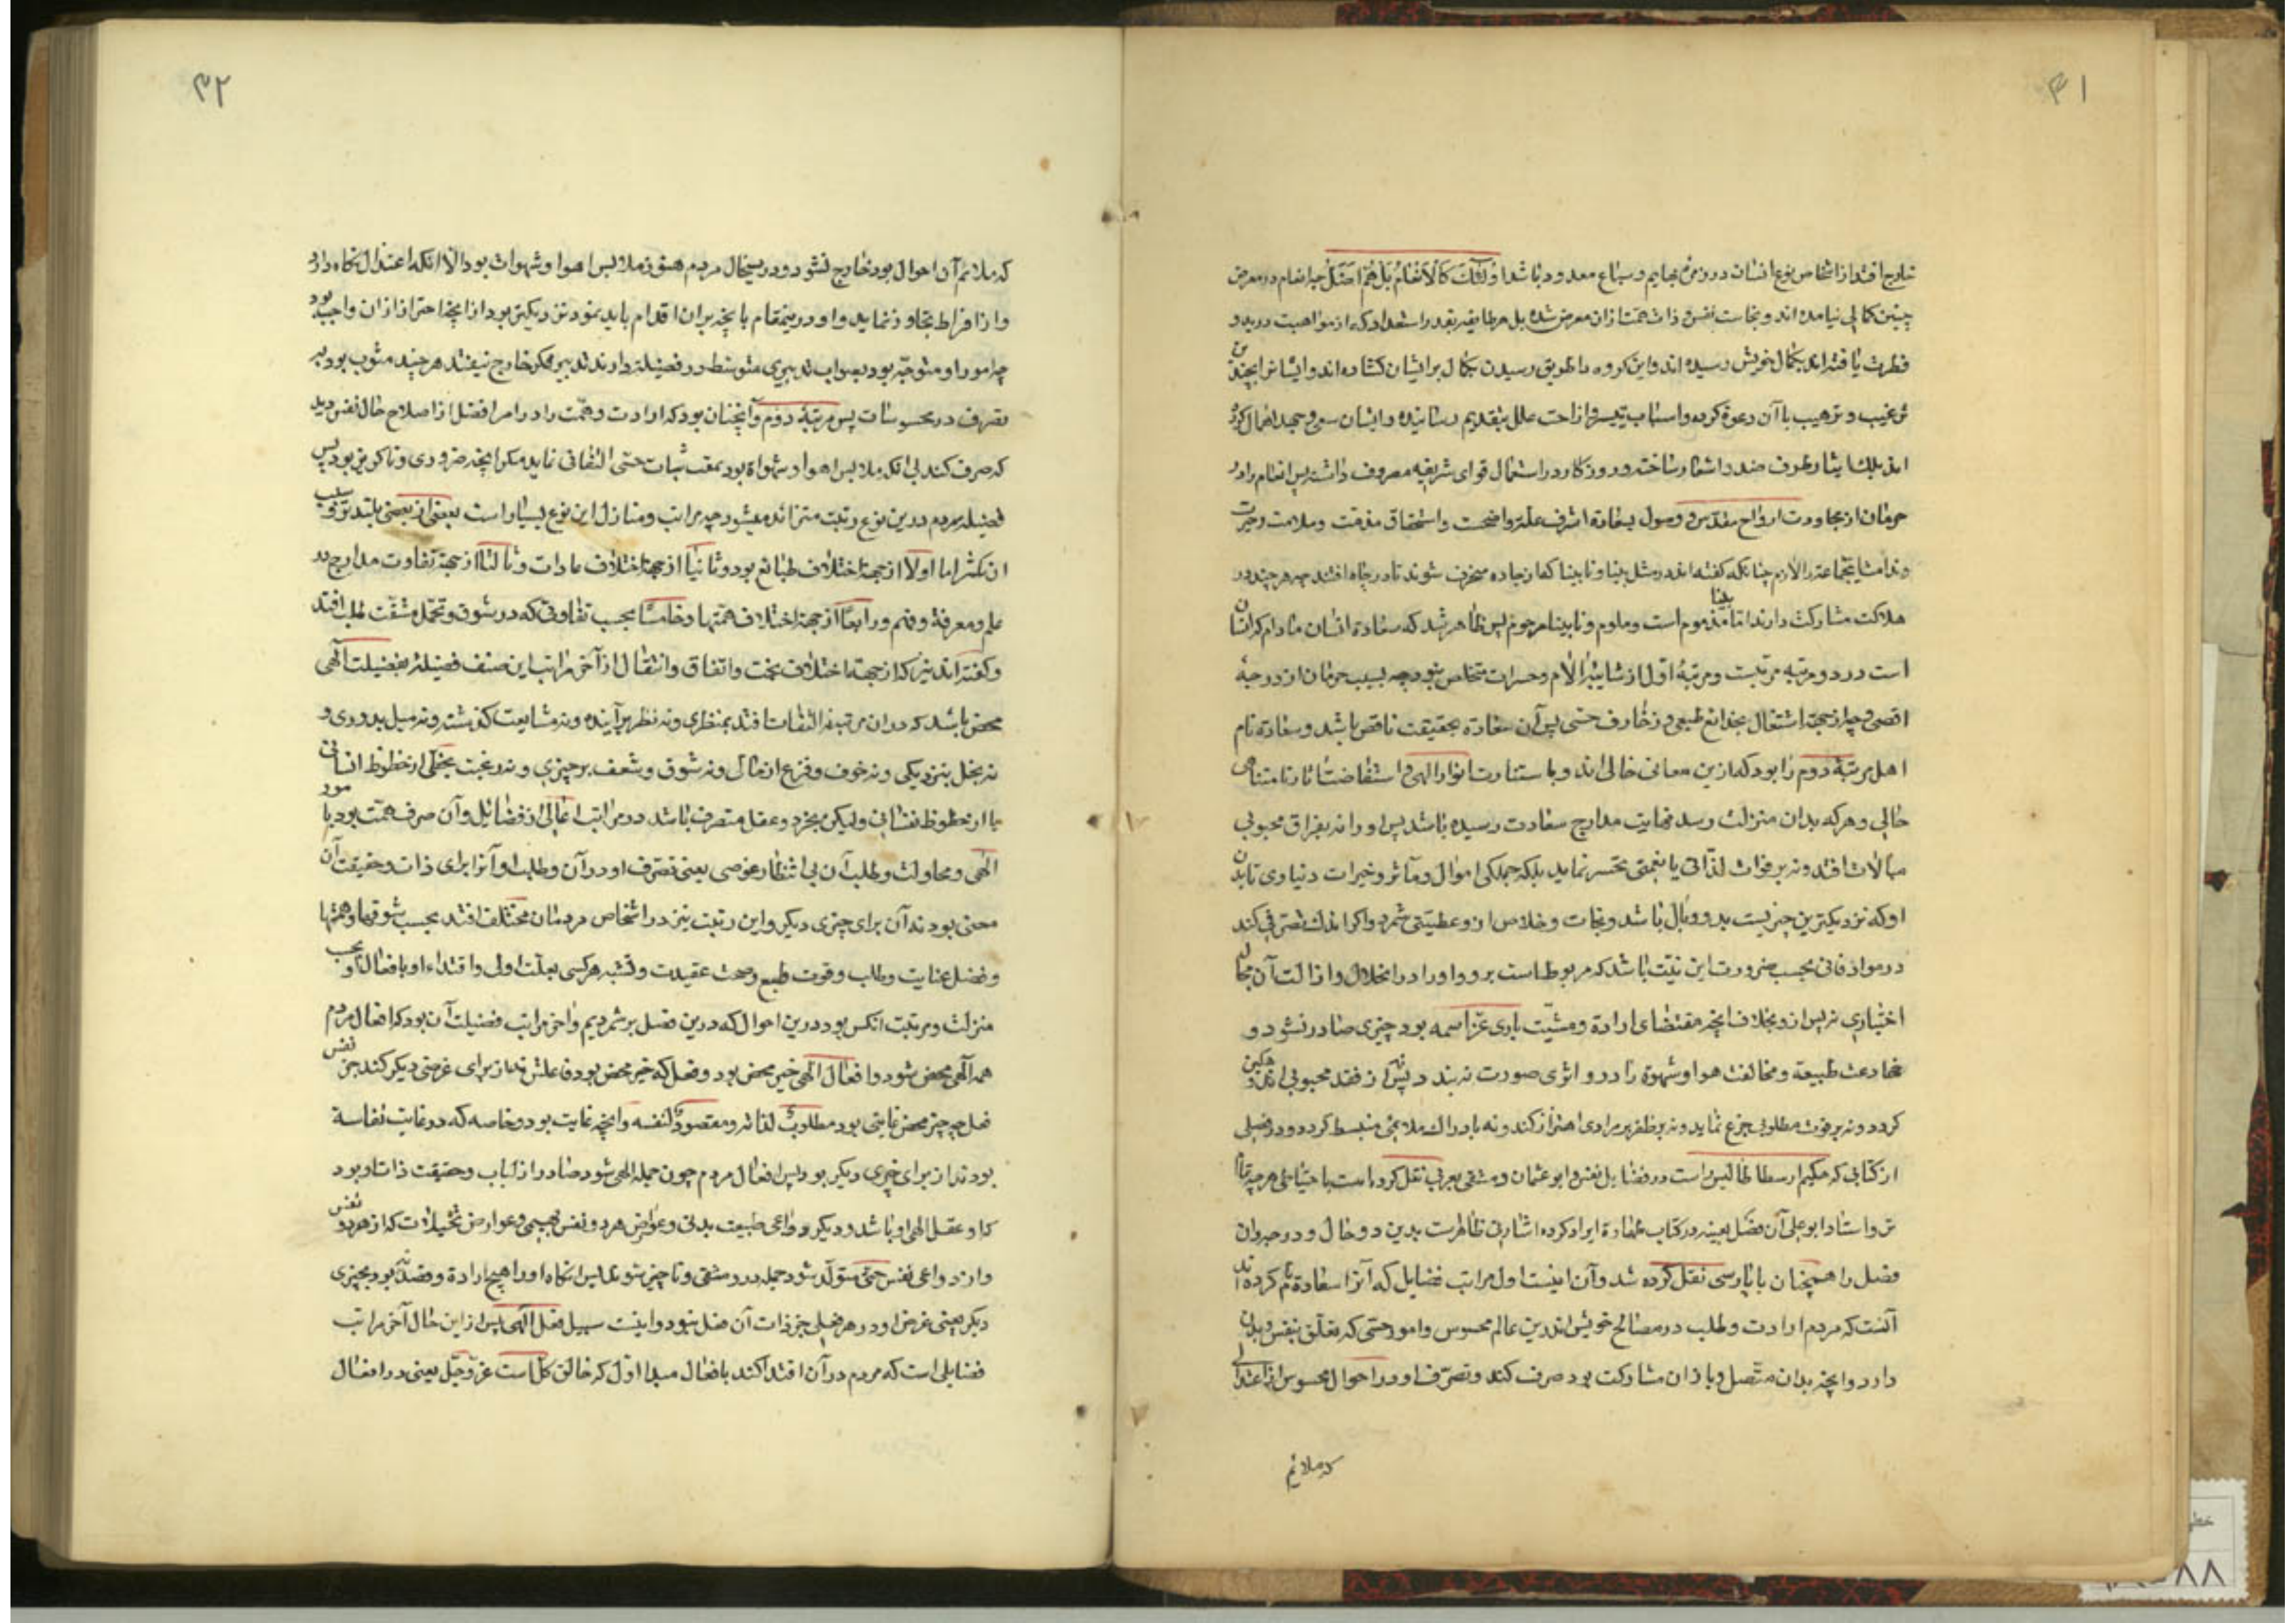 ۴۱
خارج افتد از اشخاص نوع انسان در زمرهٔ بهایم و سباع معدود باشد اولئک کالانعام بل هم اضل چه انعام در معرض
چنین کمالی نیامده‌اند و بخاست نفس و ذات همتا زان معرض شده بل هر طایفه بقدر استعداد که از مواهبت در بدو
فطرت یافته‌اند بکمال خویش رسیده‌اند و این گروه را طریق رسیدن بکمال بر ایشان گشاده‌اند و ایشانرا بچندین
ترغیب و ترهیب با آن دعوة کرده و اسباب تیسیر و ازاحت علل بتقدیم رسانیده و ایشان سعی و جهد اهمال کرده
اند بلکه ایثار طرف ضد را شعار ساخته و روزگار در استعمال قوای شریفه مصروف داشته پس انعام را در
حرمان از مجاورت ارواح مقدس و وصول بسعادة اشرف علة واضحت و استحقاق مذمت و ملامت و حیرت
و ندامت این جماعة را لازم چنانکه گفته‌اند مثل بینا و نابینا که از جاده منحرف شوند تا در چاه افتند چه هر چند در
هلاکت مشارکت دارند اما بینا مذموم است و ملوم و نابینا مرحوم پس ظاهر شد که سعادة انسان مادام که انسان
است در دو مرتبه مرتبست و مرتبهٔ اول از شایبهٔ آلام و حسرات متخلص نبود چه بسبب حرمان از درجهٔ
اقصی و چه از جهة اشتغال بخدایع طبیعی و زخارف حسی پس آن سعادة بحقیقت ناقص باشد و سعادة تام
اهل مرتبهٔ دوم را بود که ازین معانی خالی‌اند و باستنارت بانوار الهی و استفاضت آثار نامتناهی
حالی و هر که بدان منزلت رسد نهایت مدارج سعادت رسیده باشد پس او را نه بفراق محبوبی
مبالات افتد و نه بر فوات لذاتی یا نعمتی تحسر نماید بلکه جملگی اموال و مآثر و خیرات دنیاوی تا بدن
او که نزدیکترین چیزیست بدو وبال باشد و نجات و خلاص از و عطیتی شمرد و اگر اندک تصرفی کند
در مواد فانی بحسب ضرورت این نیت باشد که مربوطست برو و او را در انحلال و ازالت آن مجال
اختیاری نه پس ازو بخلاف آنچه مقتضای ارادة و مشیت باری عز اسمه بود چیزی صادر نشود و
مخادعت طبیعة و مخالفت هوا و شهوة را درو اثری صورت نبندد پس نه از فقد محبوبی اندوهگین
گردد و نه بر فوت مطلوبی جزع نماید و نه بر ظفر بر مرادی اهتزاز کند و نه بادراک ملایمی منبسط گردد و در فصلی
از کتابی که حکیم ارسطاطالیس راست در فضایل نفس و ابو عثمان دمشقی بعربی نقل کرده است با حتیاطی هر چه تمام
تر و استاد ابو علی آن فصل بعینه در کتاب طهارة ایراد کرده اشارتی ظاهرست بدین دو حال و درجه و ان
فصل را همچنان با پارسی نقل کرده شد و آن اینست اول مراتب فضایل که آنرا سعادة نام کرده‌اند
آنست که مردم ارادت و طلب در مصالح خویش اندرین عالم محسوس و امور حسی که تعلق بنفس و بدن
دارد و آنچه بدان متصل و با زان مشارکت بود صرف کند و تصرف او در احوال محسوس از اعتدالی
که ملایم
۴۲
که ملایم آن احوال بود خارج نشود و درین حال مردم هنوز ملابس اهوا و شهوات بود الا انکه اعتدال نگاه دارد
و از افراط تجاوز ننماید و او درین مقام بآنچه بران اقدام باید نمود نزدیکتر بود از انچه احتراز ازان واجب بود
چه امور او متوجه بود بصواب تدبیری متوسط در فضیلة و از تدبیر فکر خارج نیفتد هر چند مشوب بود به
تصرف در محسوسات پس مرتبهٔ دوم و آنچنان بود که ارادت و همت را در امر افضل از اصلاح حال نفس و بدن
که صرف کند بی انکه ملابس اهوا و شهواة بود بمقتنیات حسی التفاتی نماید مگر آنچه ضروری و ناگزیر بود پس
فضیلة مردم درین نوع رتبت متزائد میشود چه مراتب و منازل این نوع بسیارست بعضی از بعضی بلندتر و سبب
ان تکثر اما اولا از جهة اختلاف طبائع بود و ثانیا از جهة اختلاف عادات و ثالثا از جهة تفاوت مدارج در
علم و معرفة و فهم و رابعا از جهة اختلاف همتها و خامسا بحسب تفاوتی که در شوق و تحمل مشقت طلب افتد
و گفته‌اند نیز که از جهة اختلاف بخت و اتفاق و انتقال از آخر مراتب این صنف فضیلة بفضیلت الهی
محض باشد که دران مرتبه نه التفات افتد بمنتظری و نه نظر بر آینده و نه مشایعت گذشته و نه میل بدوری و
نه بخل بنزدیکی و نه خوف و فزع از حال و نه شوق و شعف بر چیزی و نه رغبت بحظی از حظوظ انسانی
یا از حظوظ نفسانی ولیکن بجزو عقل متصرف باشد در مراتب اعالی از فضایل و آن صرف همت بود بامور
الهی و محاولت و طلب آن بی انتظار عوضی یعنی تصرف او در آن و طلب او آنرا برای ذات و حقیقت آن
معنی بود نه آن برای چیزی دیگر و این رتبت نیز در اشخاص مردمان مختلف افتد بحسب شوقها و همتها
و فضل عنایت و طلب و قوت طبع و صحت عقیدت و تشبه هر کسی بعلت اولی و اقتداء او بافعال او بحسب
منزلت و مرتبت انکس بود درین احوال که درین فصل بر شمردیم و آخر مراتب فضیلت آن بود که افعال مردم
همه الهی محض شود و افعال الهی خیر محض بود و فعل که خیر محض بود فاعلش نه از برای غرضی دیگر کند جز نفس
فعل چه خیر محض غایتی بود مطلوب لذاته و مقصود لنفسه و آنچه غایت بود و خاصه که در غایت نفاسة
بود نه از برای چیزی دیگر بود پس افعال مردم چون جمله الهی شود صادر از لباب و حقیقت ذات او بود
که او عقل الهی او باشد و دیگر دواعی طبیعت بدنی و عوارض هر دو نفس بهیمی و عوارض تخیلات که از هر دو نفس
و از دواعی نفس حسی متولد شود جمله درو منتفی و ناچیز شود پس انگاه او را هیچ ارادة و قصد نبود بچیزی
دیگر یعنی غرض او در هر فعلی جز ذات آن فعل نبود و اینست سبیل فعل الهی پس از این حال آخر مراتب
فضایلی است که مردم در آن اقتدا کند بافعال مبدا اول که خالق کل است عز و جل یعنی در افعال